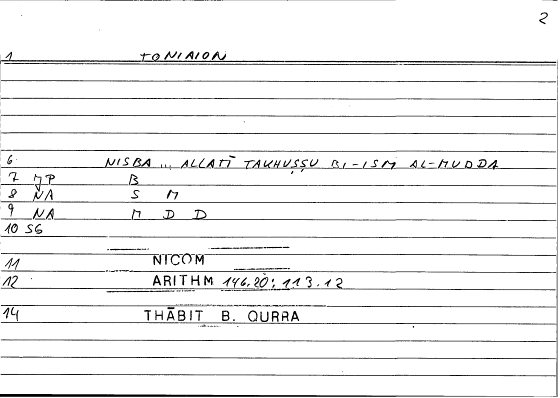 2
1 TONIAION
6 NISBA ... ALLATĪ TAKHUṢṢU BI-ISM AL-MUDDA
7 MP B
8 NA S M
9 NA M D D
10 SG
11 NICOM
12 ARITHM 146.20; 113.12
14 THĀBIT B. QURRA